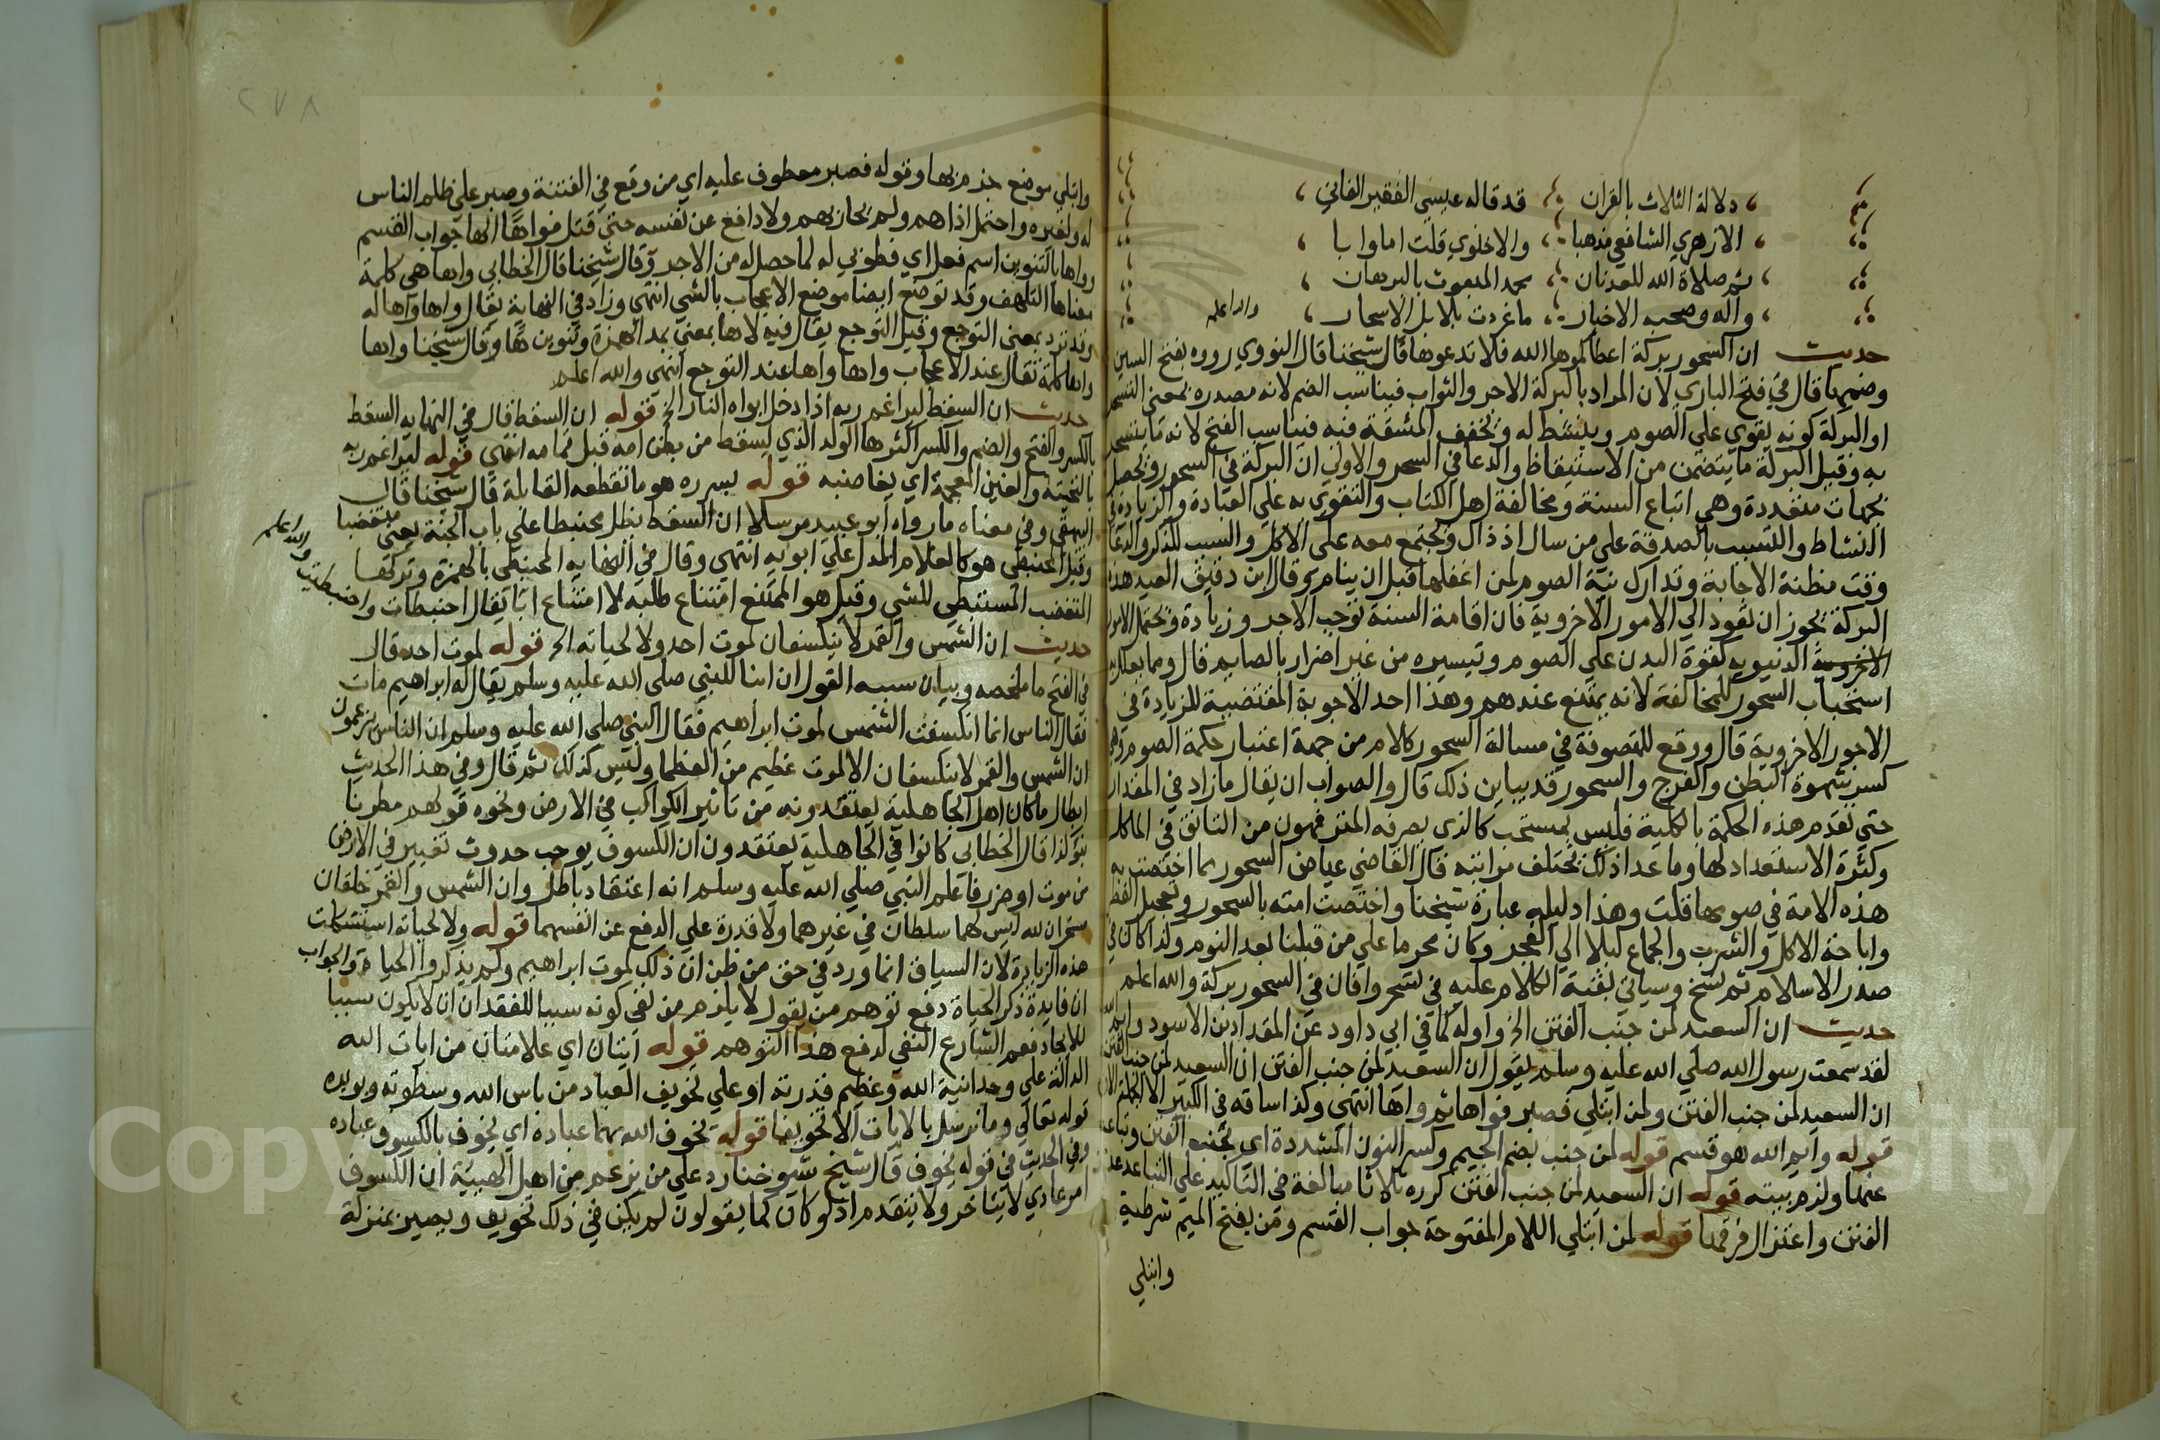 دلالة الثلاث بالقران قد قاله عيسى الفقير الفاني
الازهري الشافعي مذهبا والاخلوي قلت اما وابا
ثم صلاة الله للعدنان محمد المبعوث بالبرهان
واله وصحبه الاخيار ما غردت بلابل الاسحار والله اعلم
حديث ان السحور بركة اعطاكموها الله فلا تدعوها قال شيخنا قال النووي رووه بفتح السين
وضمها قال في فتح الباري لان المراد بالبركة الاجر والثواب فيناسب الضم لانه مصدر بمعنى التسحر
او البركة كونه يقوي على الصوم وينشط له ويخفف المشقة فيه فيناسب الفتح لانه ما يتسحر
به وقيل البركة ما يتضمن من الاستيقاظ والدعا في السحر والاولى ان البركة في السحور تحصل
بجهات متعددة وهي اتباع السنة ومخالفة اهل الكتاب والتقوي به على العبادة والزيادة في
النشاط والتسبب بالصدقة على من سال اذ ذاك ويجتمع معه على الاكل والسبب للذكر والدعا
وقت مظنة الاجابة وتدارك نية الصوم لمن اغفلها قبل ان ينام وقال ابن دقيق العيد هذه
البركة يجوز ان تعود الى الامور الاخروية فان اقامة السنة توجب الاجر وزيادة وتحتمل الامور
الاخروية الدنيويه كقوة البدن على الصوم وتيسيره من غير اضرار بالصايم قال ومما يعلل به
استحباب السحور للمخالفة لانه يمتنع عندهم وهذا احد الاجوبة المقتضية للزيادة في
الاجور الاخروية قال ووقع للمتصوفة في مسالة السحور كلام من جهة اعتبار حكمة الصوم وهي
كسر شهوة البطن والفرج والسحور قد يباين ذلك قال والصواب ان يقال ما زاد في المقدار
حتى تعدم هذه الحكمة بالكلية فليس بمستحب كالذي يصرفه المترفهون من التانق في الماكل
وكثرة الاستعداد لها وما عدا ذلك تختلف مراتبه قال القاضي عياض السحور مما اختصت به
هذه الامة في صومها قلت وهذا دليله عبارة شيخنا واختصت امته بالسحور وتعجيل الفطر
واباحة الاكل والشرب والجماع ليلا الى الفجر وكان محرما على من قبلنا بعد النوم وكذا كان في
صدر الاسلام ثم نسخ وسياتي بقية الكلام عليه في تسحروا فان في السحور بركة والله اعلم
حديث ان السعيد لمن جنب الفتن الخ واوله كما في ابي داود عن المقداد بن الاسود
لقد سمعت رسول الله صلى الله عليه وسلم يقول ان السعيد لمن جنب الفتن ان السعيد لمن جنب الفتن
ان السعيد لمن جنب الفتن ولمن ابتلي فصبر فواها ثم واها انتهى وكذا ساقه في الكبير الا
قوله وايم الله هو قسم قوله لمن جنب بضم الجيم وكسر النون المشددة اي تجنب الفتن وتباعد
عنها ولزم بيته قوله ان السعيد لمن جنب الفتن كرره ثلاثا مبالغة في التاكيد على التباعد عن
الفتن واعتزال فرقها قوله لمن ابتلي اللام المفتوحة جواب القسم ومن بفتح الميم شرطية
وابتلي
٢٧٨
وابتلي موضع جزم بها وقوله فصبر معطوف عليه اي من وقع في الفتنة وصبر على ظلم الناس
له ولغيره واحتمل اذاهم ولم يحاربهم ولا دافع عن نفسه حتى قتل فواها الها جواب القسم
وواها بالتنوين اسم فعل اي فطوبى له لما حصل له من الاجر وقال شيخنا قال الخطابي واها هي كلمة
معناها التلهف وقد توضع ايضا موضع الاعجاب بالشي انتهى وزاد في النهاية يقال واها واها له
وقد ترد بمعنى التوجع وقيل التوجع يقال فيه لاها بمعنى بمد الهمزة وتنوين ها وقال شيخنا واها
واها كلمة تقال عند الاعجاب واها واها عند التوجع انتهى والله اعلم
حديث ان السقط ليراغم ربه اذا دخل ابواه النار الخ قوله ان السقط قال في النهايه السقط
بالكسر والفتح والضم والكسر اكثرها الولد الذي يسقط من بطن امه قبل تمامه انتهى قوله ليراغم ربه
بالتحتية والغين المعجمة اي يغاضبه قوله بسرره هو ما تقطعه القابلة قال شيخنا قال
البيهقي وفي معناه ما رواه ابو عبيد مرسلا ان السقط يظل محبنطيا على باب الجنة يعني متغضبا
وقيل المحبنطي هو كالغلام المدل على ابويه انتهى وقال في النهايه المحبنطي بالهمزة وتركها
التغضب المستبطي للشي وقيل هو الممتنع امتناع طلبه لا امتناع ابا يقال احبنطات واحبنطيت والله اعلم
حديث ان الشمس والقمر لا ينكسفان لموت احد ولا لحياته الخ قوله لموت احد قال
في الفتح ما ملخصه وبيان سببه القول ان ابنا للنبي صلى الله عليه وسلم يقال له ابراهيم مات
فقال الناس انما انكسفت الشمس لموت ابراهيم فقال النبي صلى الله عليه وسلم ان الناس يزعمون
ان الشمس والقمر لا ينكسفان الا لموت عظيم من العظما وليس كذلك ثم قال وفي هذا الحديث
ابطال ما كان اهل الجاهلية يعتقدونه من تاثير الكواكب في الارض ونحوه قولهم مطرنا
بنو كذا قال الخطابي كانوا في الجاهلية يعتقدون ان الكسوف يوجب حدوث تغيير في الارض
من موت او ضرر فاعلم النبي صلى الله عليه وسلم انه اعتقاد باطل وان الشمس والقمر خلقان
مسخران لله ليس لهما سلطان في غيرهما ولا قدرة على الدفع عن انفسهما قوله ولا لحياته استشكلت
هذه الزيادة لان السياق انما ورد في حق من ظن ان ذلك لموت ابراهيم ولم يذكروا الحياة والجواب
ان فايدة ذكر الحياة دفع توهم من يقول لا يلزم من نفي كونه سببا للفقد ان لا يكون سببا
للايجاد فعمم الشارع النفي لدفع هذا التوهم قوله ايتان اي علامتان من ايات الله
الدالة على وحدانية الله وعظيم قدرته او على تخويف العباد من باس الله وسطوته ويويده
قوله تعالى وما نرسل بالايات الا تخويفا قوله يخوف الله بهما عباده اي يخوف بالكسوف عباده
وفي الحديث في قوله يخوف قال شيخ شيوخنا رد على من يزعم من اهل الهيئة ان الكسوف
امر عادي لا يتاخر ولا يتقدم اذ لو كان كما يقولون لم يكن في ذلك تخويف ويصير بمنزلة